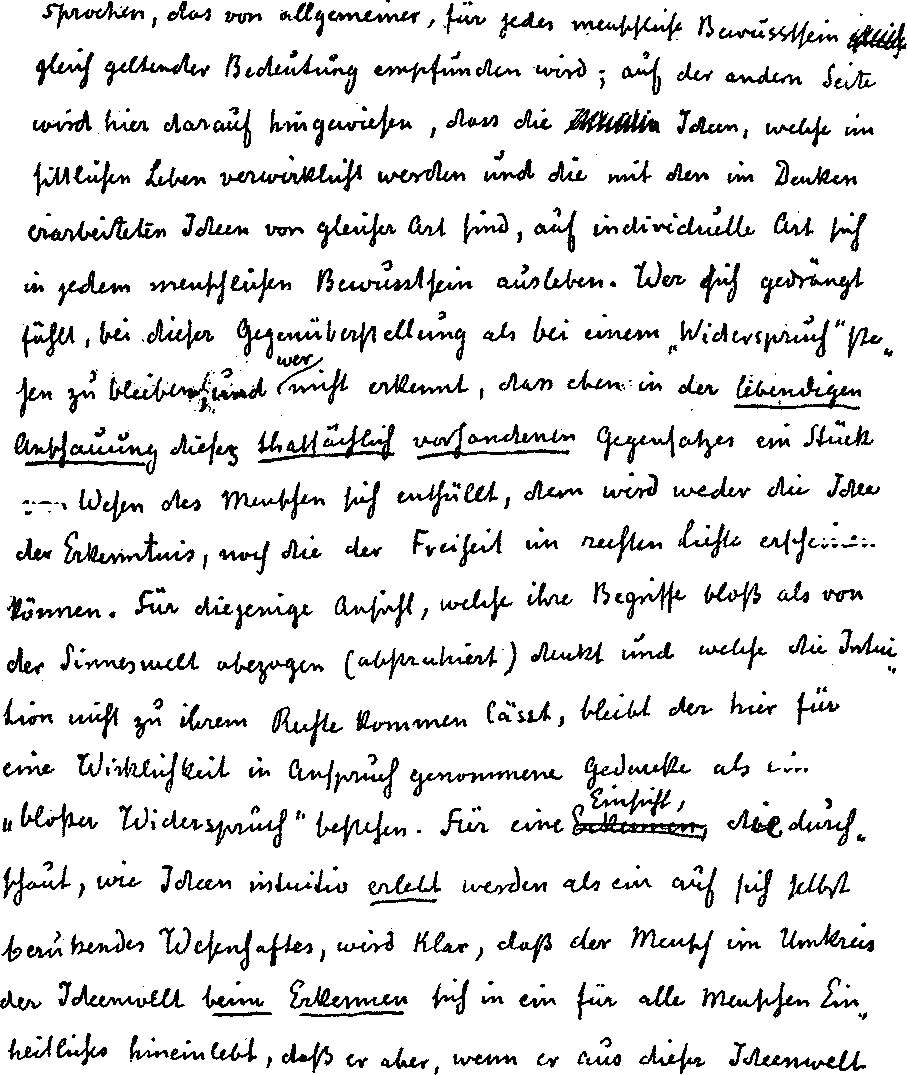 sprochen, das von allgemeiner, für jedes menschliche Bewusstsein
gleich geltender Bedeutung empfunden wird; auf der andern Seite
wird hier darauf hingewiesen, dass die Ideen, welche im
sittlichen Leben verwirklicht werden und die mit den im Denken
erarbeiteten Ideen von gleicher Art sind, auf individuelle Art sich
in jedem menschlichen Bewusstsein ausleben. Wer sich gedrängt
fühlt, bei dieser Gegenüberstellung als bei einem „Widerspruch" ste„
hen zu bleiben, und wer nicht erkennt, dass eben in der lebendigen
Anschauung dieses thatsächlich vorhandenen Gegensatzes ein Stück
Wesen des Menschen sich enthüllt, dem wird weder die Idee
der Erkenntnis, noch die der Freiheit im rechten Lichte erscheinen
können. Für diejenige Ansicht, welche ihre Begriffe bloß als von
der Sinneswelt abgezogen (abstrahiert) denkt und welche die Intui„
tion nicht zu ihrem Rechte kommen lässt, bleibt der hier für
eine Wirklichkeit in Anspruch genommene Gedanke als ein
„bloßer Widerspruch" bestehen. Für eine Einsicht, die durch„
schaut, wie Ideen intuitiv erlebt werden als ein auf sich selbst
beruhendes Wesenhaftes, wird klar, daß der Mensch im Umkreis
der Ideenwelt beim Erkennen sich in ein für alle Menschen Ein„
heitliches hineinlebt, daß er aber, wenn er aus dieser Ideenwelt